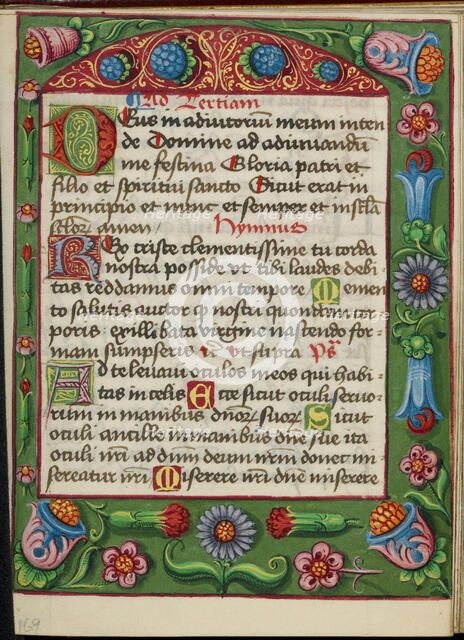 Ad Tertiam
Deus in adiutorium meum inten
de Domine ad adiuuandū
me festina Gloria patri et
filio et spiritui sancto Sicut erat in
principio et nunc et semper et in secla
seclor amen Hymnus
Rex criste clementissine tu corda
nostra posside vt tibi laudes debi
tas reddamus omni tempore Memen
to salutis auctor q̄ nostri quondam cor
poris ex illibata virgine nascendo for
mam sumpseris vt supra ps̄
Ad te leuaui oculos meos qui habi
tas in celis Ecce sicut oculi seruo
rum in manibus dn̄or suor Sicut
oculi ancille in manibus dn̄e sue ita
oculi nr̄i ad dn̄m deum nr̄m donec mi
sereatur nr̄i Miserere nr̄i dn̄e miserere
169
Heritage
Images